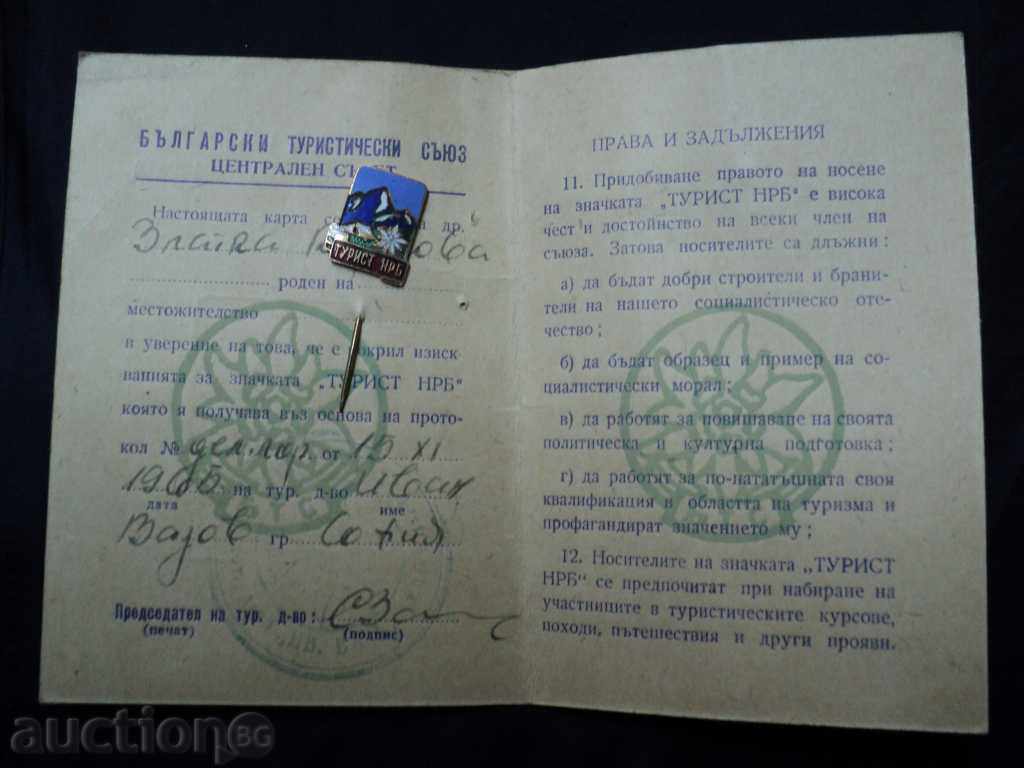 БЪЛГАРСКИ ТУРИСТИЧЕСКИ СЪЮЗ
ЦЕНТРАЛЕН
Настоящата карта др.
Златка
роден на
местожителство
в уверение на това, че е покрил изиск-
ванията за значката „ТУРИСТ НРБ“
която я получава въз основа на прото-
кол № от 15 XI
1966 на тур. д-во Иван
дата име
Вазов гр. София
Председател на тур. д-во:
(печат) (подпис)
ТУРИСТ НРБ
ПРАВА И ЗАДЪЛЖЕНИЯ
11. Придобиване правото на носене
на значката „ТУРИСТ НРБ“ е висока
чест и достойнство на всеки член на
съюза. Затова носителите са длъжни:
а) да бъдат добри строители и брани-
тели на нашето социалистическо оте-
чество;
б) да бъдат образец и пример на со-
циалистически морал;
в) да работят за повишаване на своята
политическа и културна подготовка;
г) да работят за по-нататъшната своя
квалификация в областта на туризма и
профагандират значението му;
12. Носителите на значката „ТУРИСТ
НРБ“ се предпочитат при набиране на
участниците в туристическите курсове,
походи, пътешествия и други прояви.
auction BG